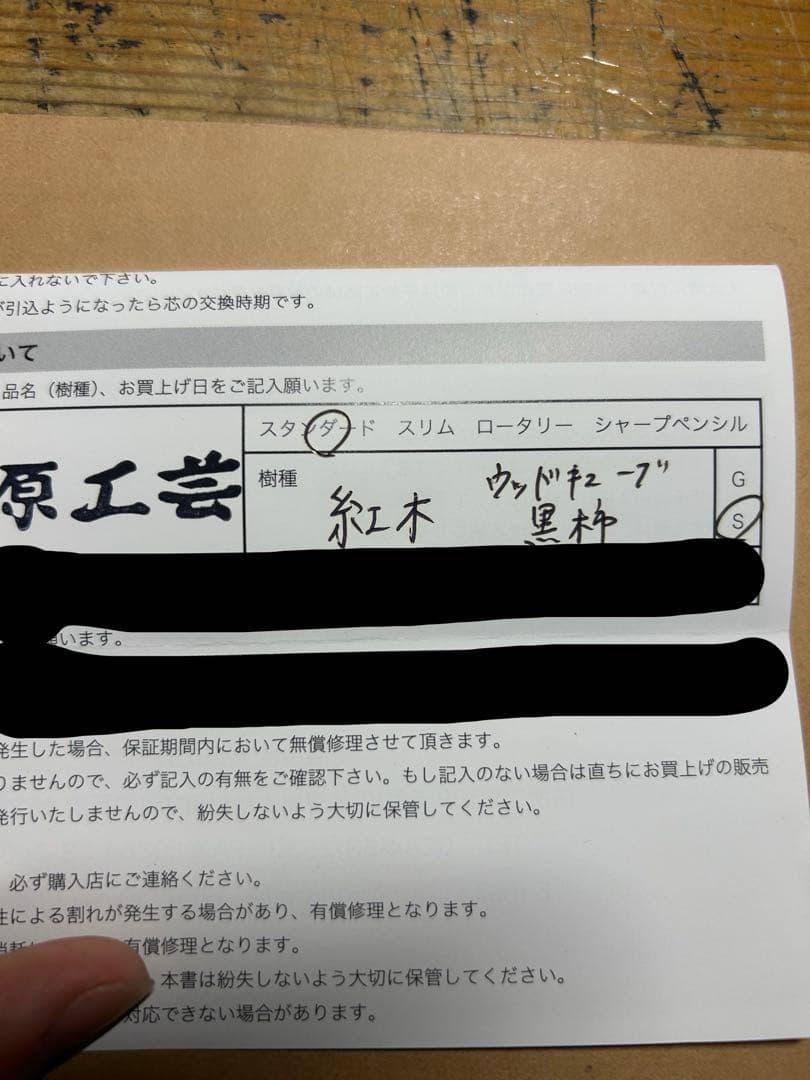 に入れないで下さい。
が引込ようになったら芯の交換時期です。
いて
品名（樹種）、お買上げ日をご記入願います。
原工芸
スタンダード スリム ロータリー シャープペンシル
樹種
紅木
ウッドキューブ
黒柿
G
S
います。
発生した場合、保証期間内において無償修理させて頂きます。
りませんので、必ず記入の有無をご確認下さい。もし記入のない場合は直ちにお買上げの販売
発行いたしませんので、紛失しないよう大切に保管してください。
必ず購入店にご連絡ください。
性による割れが発生する場合があり、有償修理となります。
有償修理となります。
本書は紛失しないよう大切に保管してください。
対応できない場合があります。